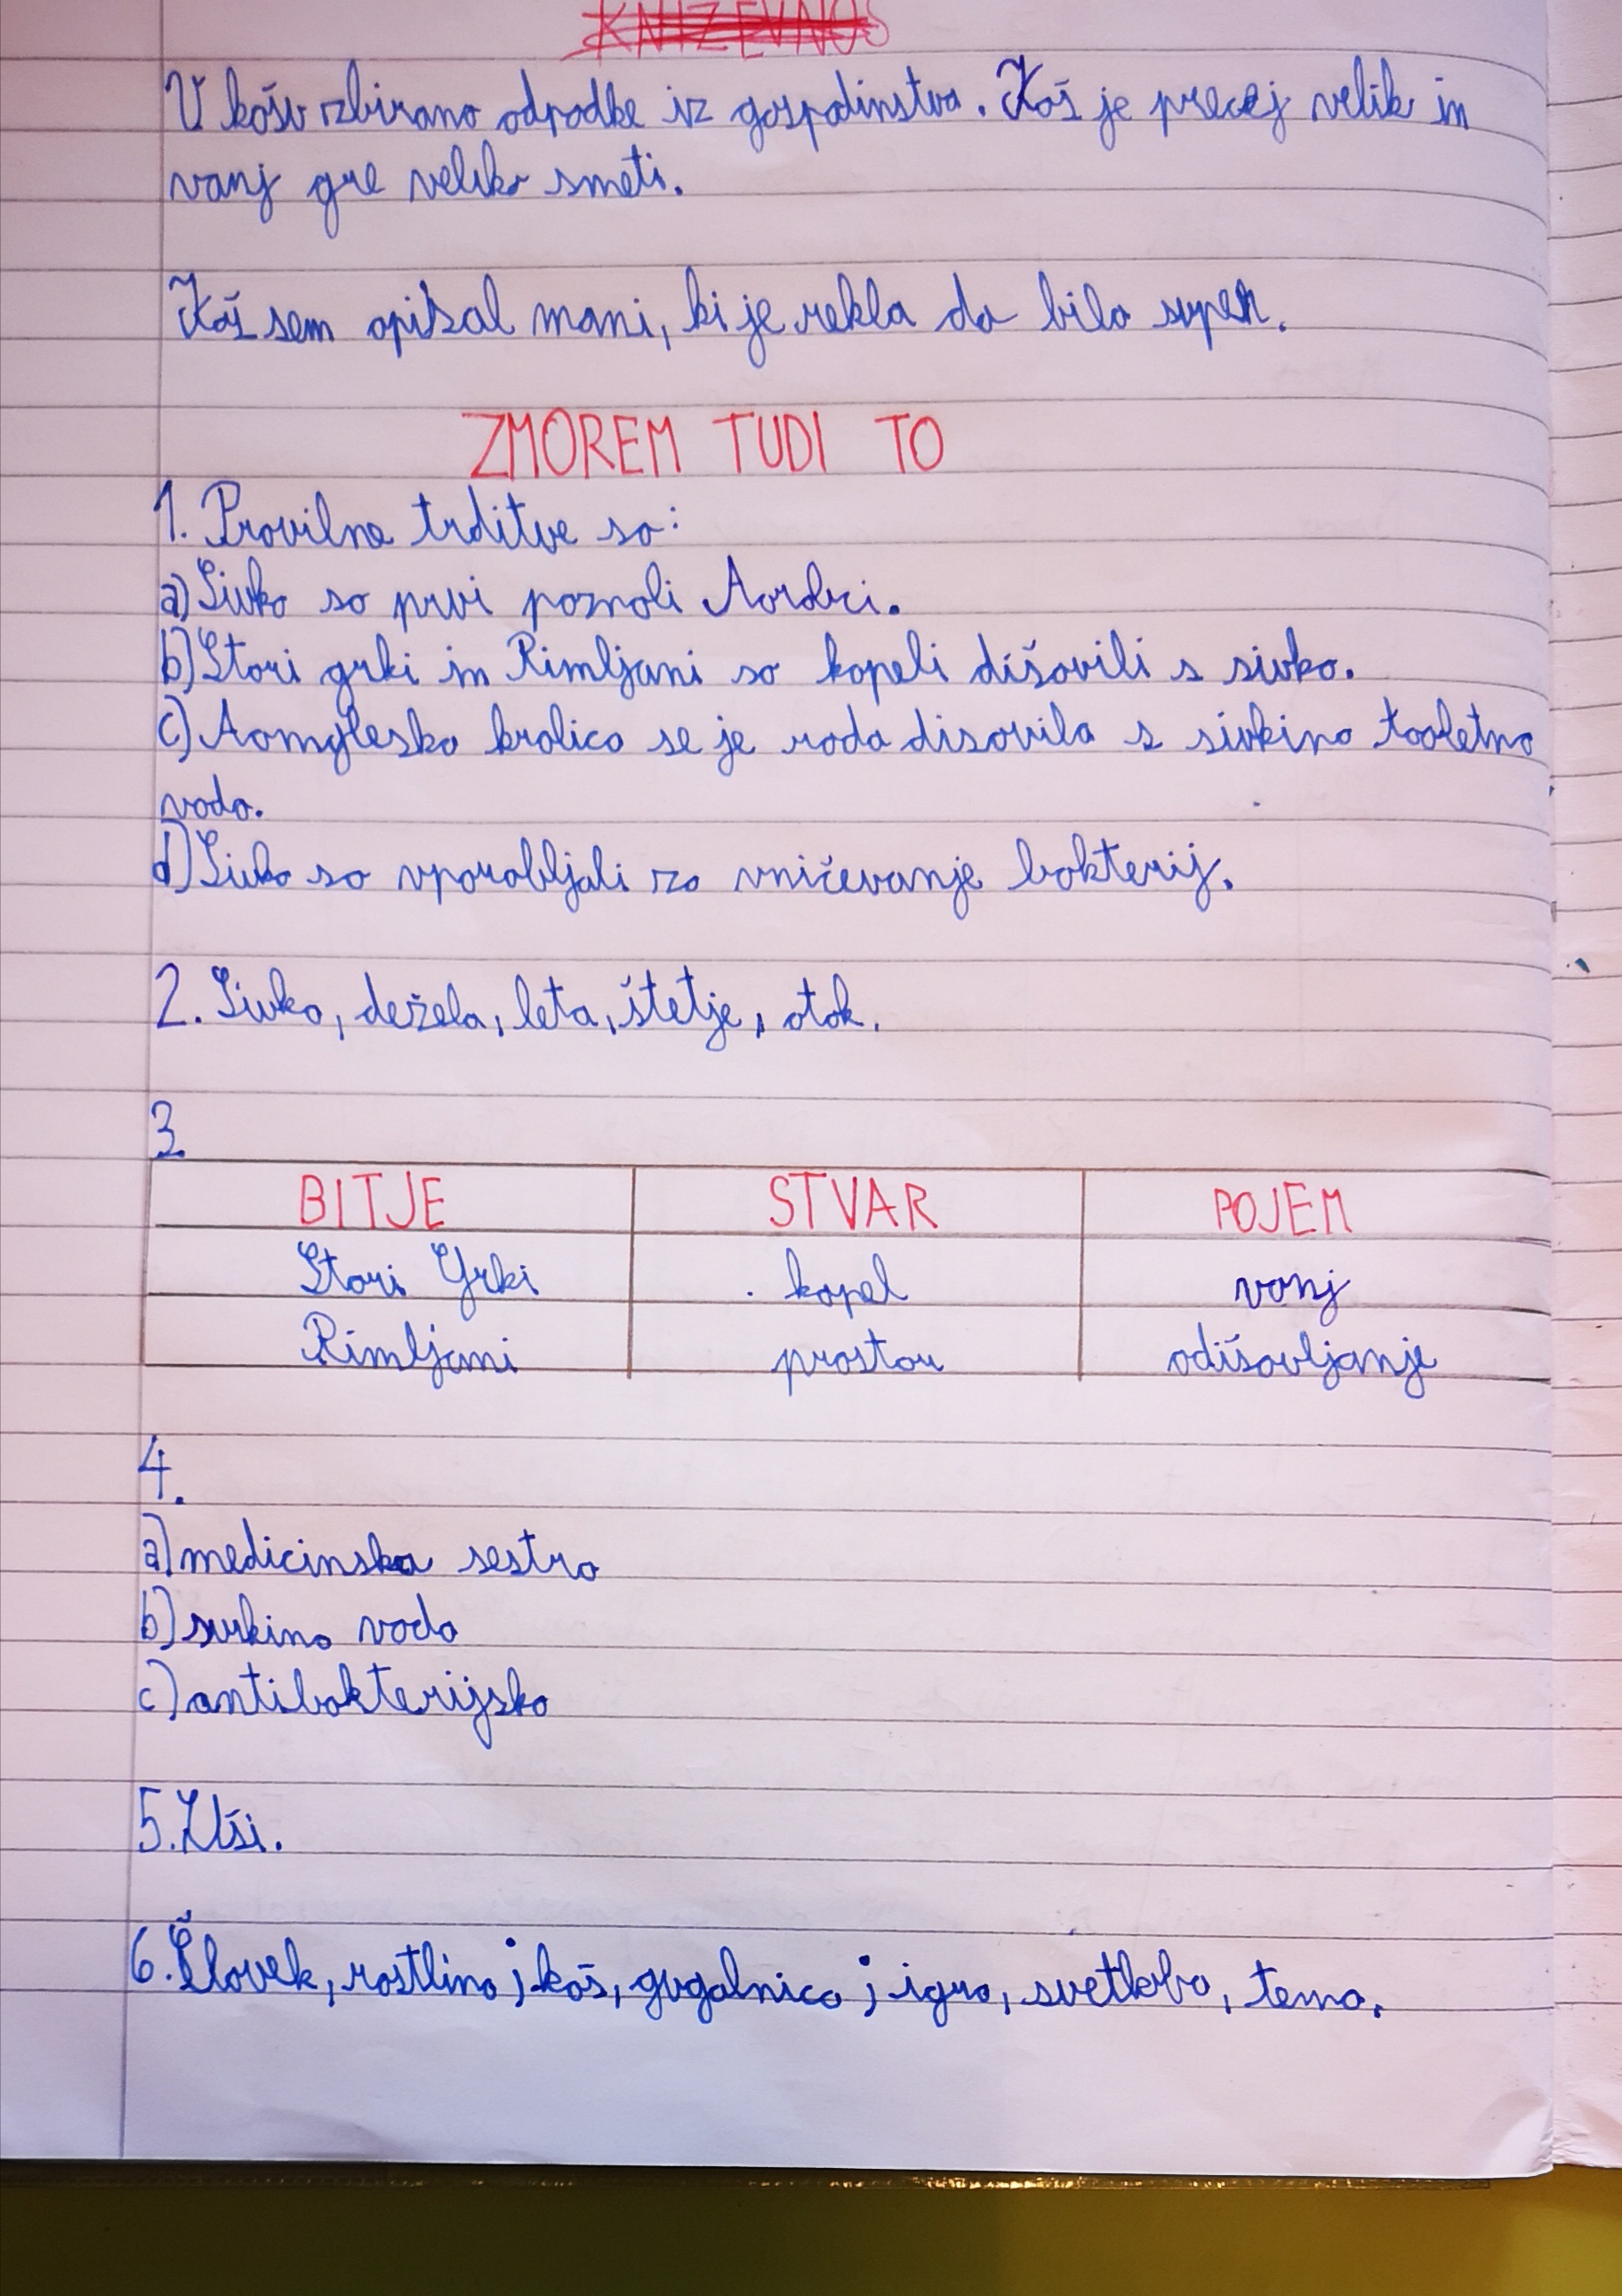 KNIŽEVNOS
V košu zbirano odpadke iz gospodinstva. Koš je precej velik in
vanj gre veliko smeti.
Koš sem opisal mami, ki je rekla da bilo super.
ZMOREM TUDI TO
1. Pravilne trditve so:
a) Sivko so prvi poznali Aordci.
b) Stari grki in Rimljani so kopeli dišavili s sivko.
c) Aomgleska kralica se je rada disavila s sivkino toaletno
vodo.
d) Sivko so uporabljali za uničevanje bakterij.
2. Sivka, dežela, leta, štetje, otok.
3.
BITJE STVAR POJEM
Stari Grki kopel vonj
Rimljani prostor odišavljanje
4.
a) medicinska sestra
b) sivkina voda
c) antibakterijsko
5. Uši.
6. Človek, rastlina; koš, gugalnica; igra, svetloba, tema.